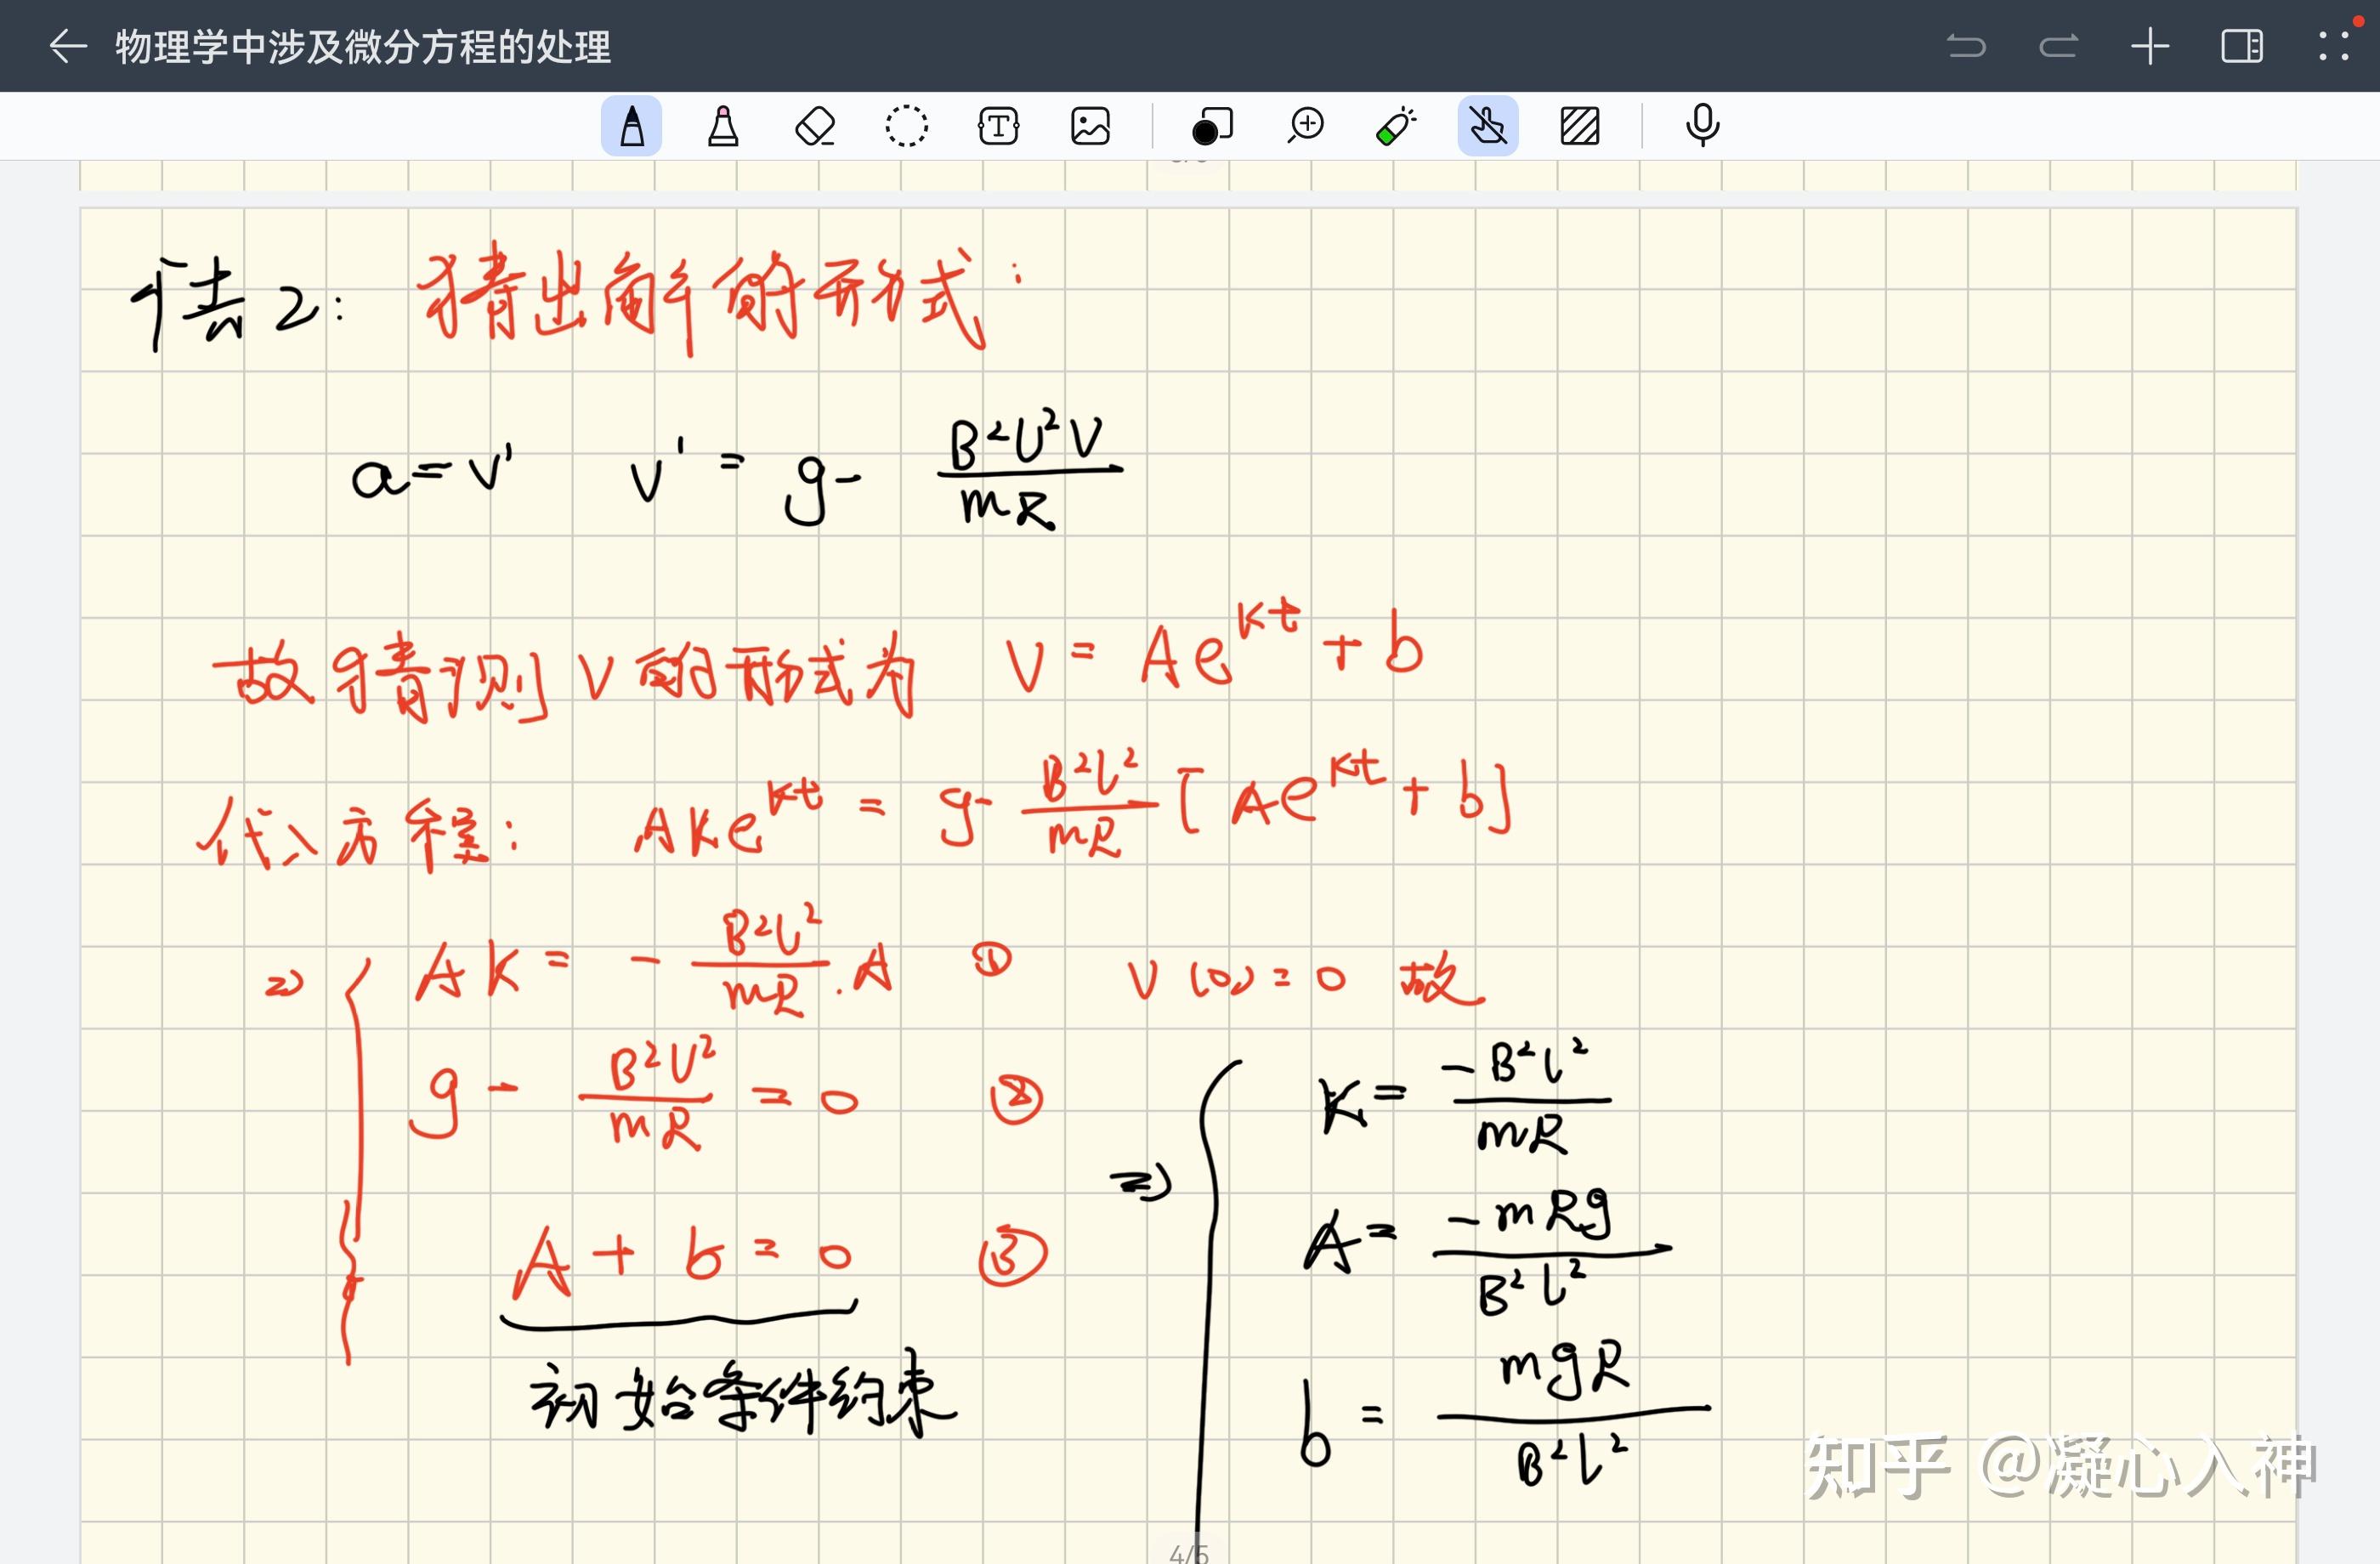 物理学中涉及微分方程的处理
法2: 猜出解的形式:
a=v' v' = g- B²L²V/mR
故猜测V的形式为 V = Ae^kt + b
代入方程: AKe^kt = g- B²L²/mR [Ae^kt + b]
⇒ { AK = - B²L²/mR · A ① V(0)=0 故
g - B²L²/mR = 0 ②
A + b = 0 ③
初始条件约束
⇒ { K = -B²L²/mR
A = -mRg/B²L²
b = mgR/B²L²
知乎 @凝心入神
4/5